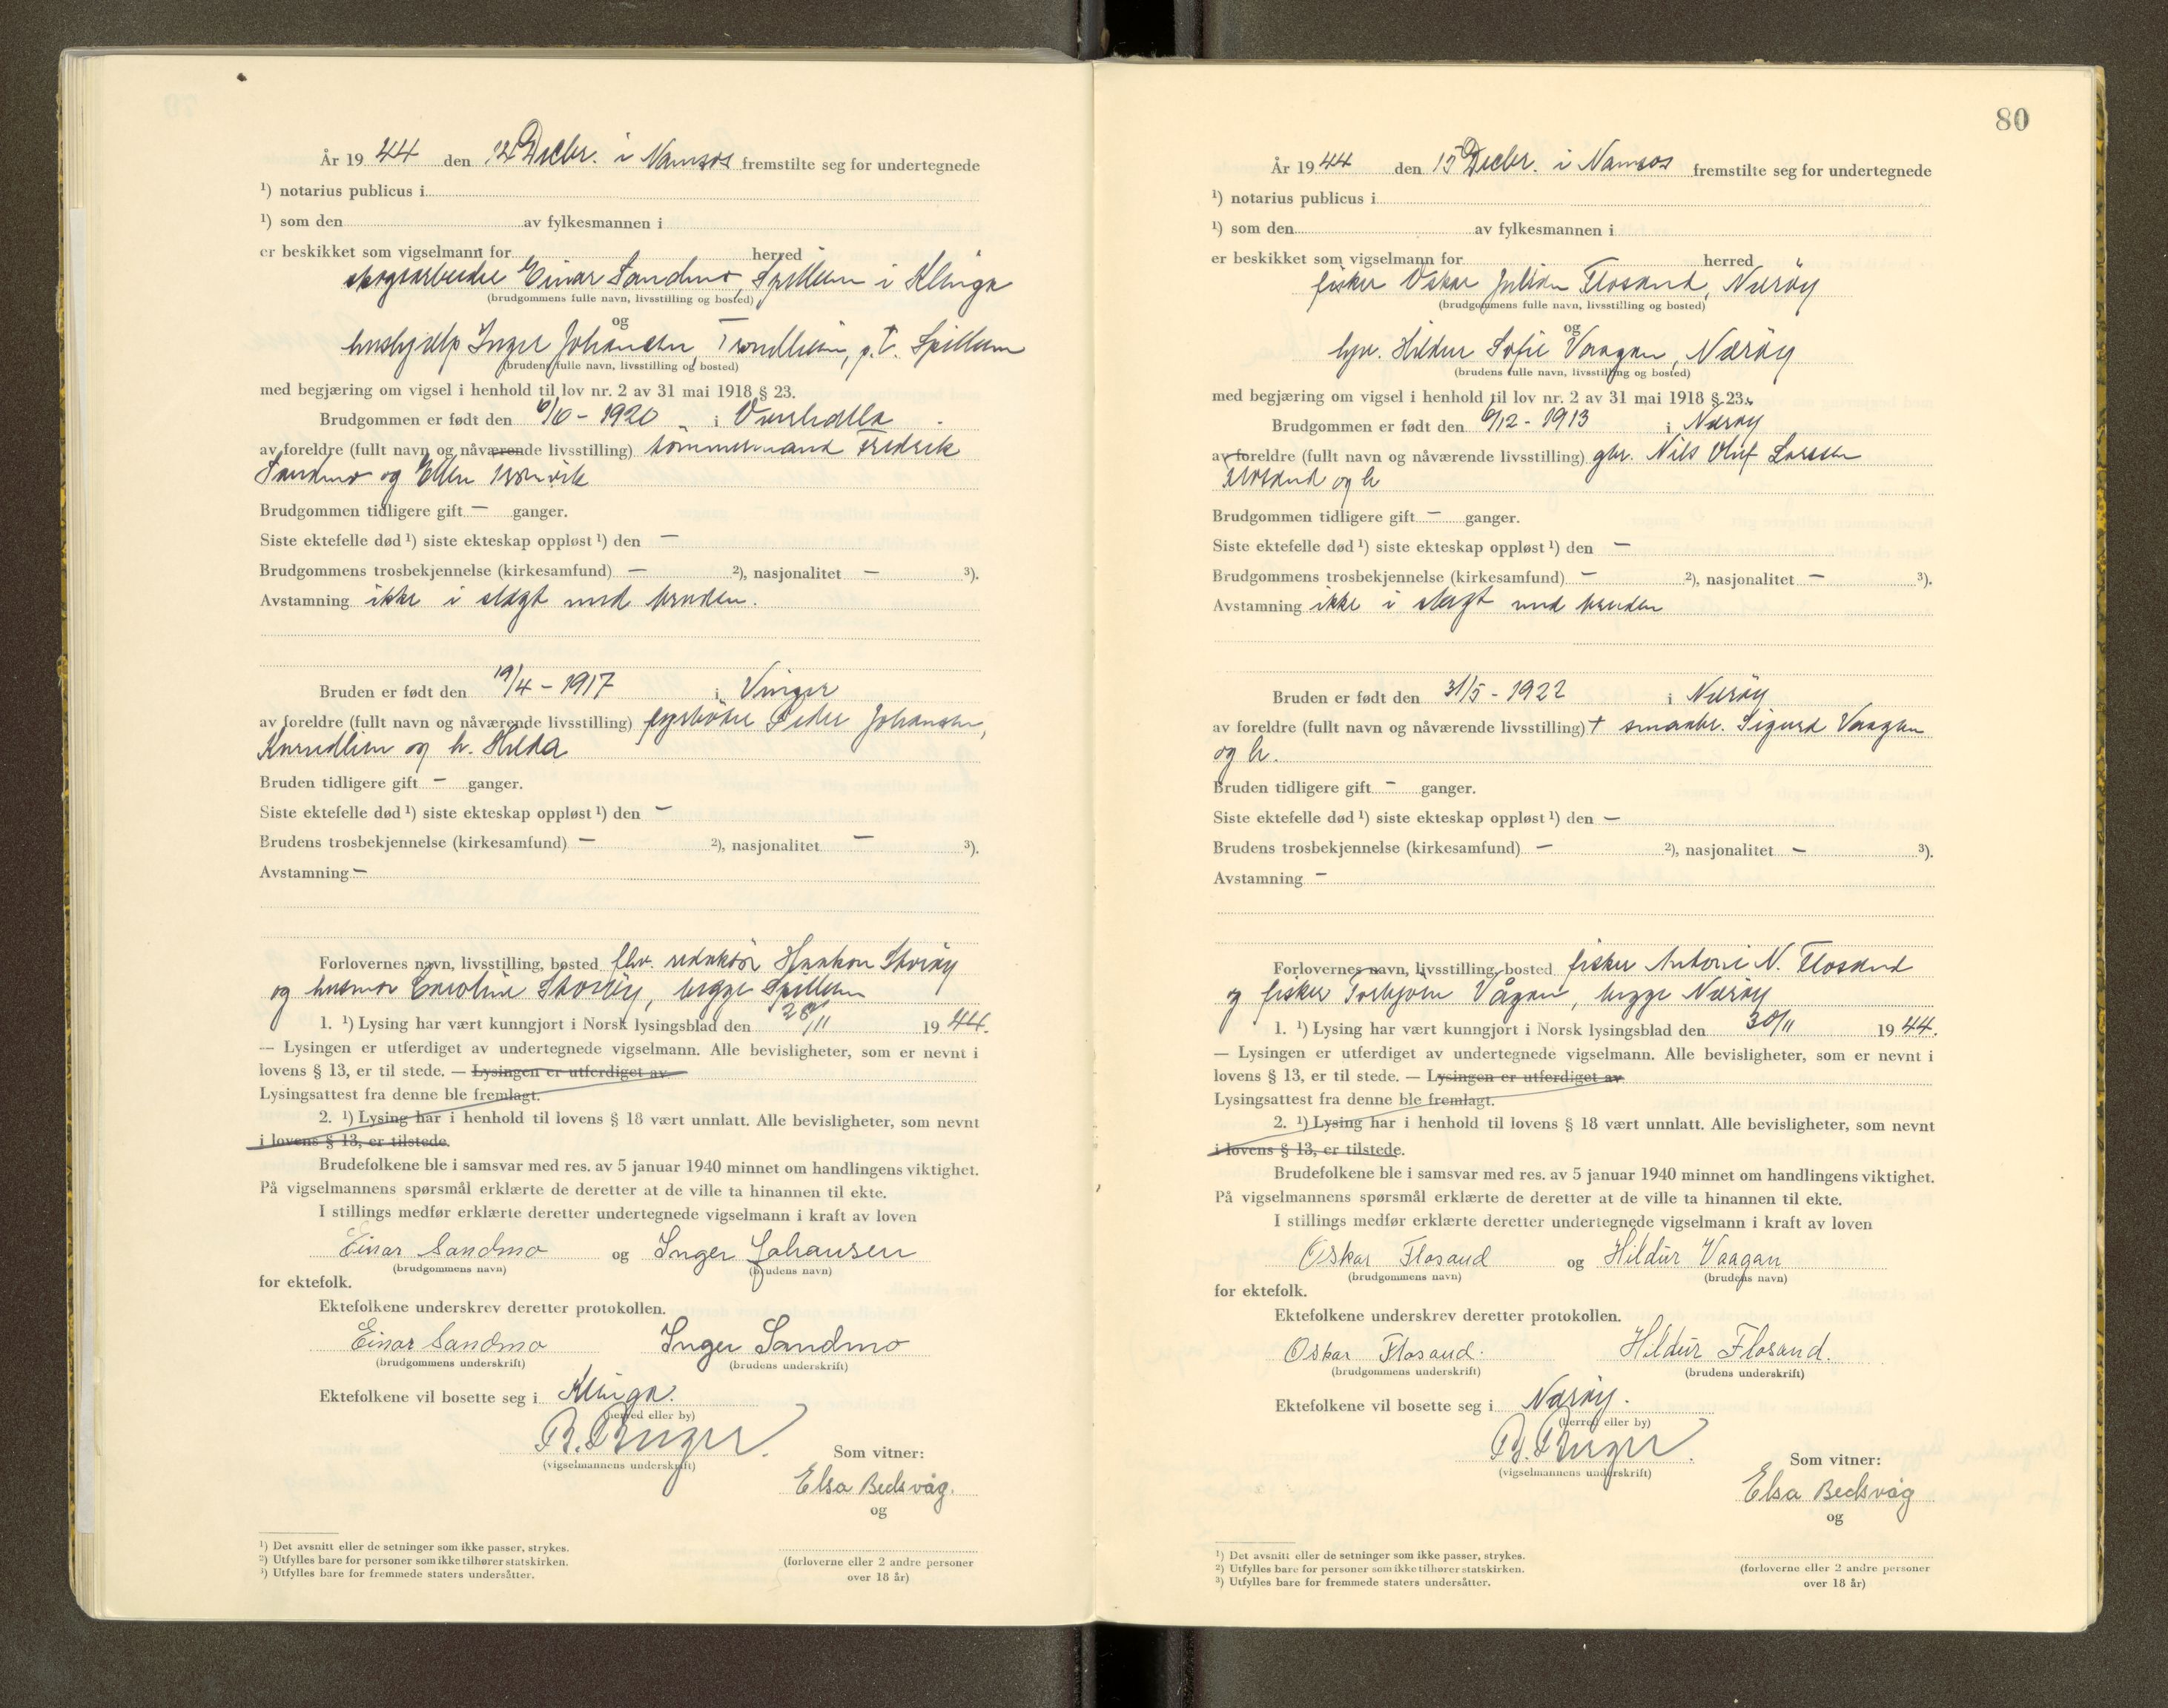 År 19 44 den 12 Decbr. i Namsos fremstilte seg for undertegnede
¹) notarius publicus i
¹) som den av fylkesmannen i
er beskikket som vigselmann for herred
skogsarbeider Einar Sandmo, Spillum i Klinga
(brudgommens fulle navn, livsstilling og bosted)
og
hushjelp Inger Johansen, p.t. Spillum
(brudens fulle navn, livsstilling og bosted)
med begjæring om vigsel i henhold til lov nr. 2 av 31 mai 1918 § 23.
Brudgommen er født den 6/10 - 1920 i Overhalla
av foreldre (fullt navn og nåværende livsstilling) tømmermand Fredrik
Sandmo og Ellen
Brudgommen tidligere gift — ganger.
Siste ektefelle død ¹) siste ekteskap oppløst ¹) den —
Brudgommens trosbekjennelse (kirkesamfund) — ²), nasjonalitet — ³).
Avstamning ikke i slægt med bruden.
Bruden er født den 19/4 - 1917 i Vinger
av foreldre (fullt navn og nåværende livsstilling) fyrbøter Peder Johansen,
og h. Hilda
Bruden tidligere gift — ganger.
Siste ektefelle død ¹) siste ekteskap oppløst ¹) den —
Brudens trosbekjennelse (kirkesamfund) — ²), nasjonalitet — ³).
Avstamning —
Forlovernes navn, livsstilling, bosted fhv. redaktør Haakon Storøy
og husmor Caroline Storøy, begge Spillum
1. ¹) Lysing har vært kunngjort i Norsk lysingsblad den 28/11 19 44.
— Lysingen er utferdiget av undertegnede vigselmann. Alle bevisligheter, som er nevnt i
lovens § 13, er til stede. — Lysingen er utferdiget av
Lysingsattest fra denne ble fremlagt.
2. ¹) Lysing har i henhold til lovens § 18 vært unnlatt. Alle bevisligheter, som nevnt
i lovens § 13, er tilstede.
Brudefolkene ble i samsvar med res. av 5 januar 1940 minnet om handlingens viktighet.
På vigselmannens spørsmål erklærte de deretter at de ville ta hinannen til ekte.
I stillings medfør erklærte deretter undertegnede vigselmann i kraft av loven
Einar Sandmo og Inger Johansen
(brudgommens navn) (brudens navn)
for ektefolk.
Ektefolkene underskrev deretter protokollen.
Einar Sandmo Inger Sandmo
(brudgommens underskrift) (brudens underskrift)
Ektefolkene vil bosette seg i Klinga.
(herred eller by)
(vigselmannens underskrift)
Som vitner:
Elsa Bedsvåg.
og
¹) Det avsnitt eller de setninger som ikke passer, strykes.
²) Utfylles bare for personer som ikke tilhører statskirken.
³) Utfylles bare for fremmede staters undersåtter.
(forloverne eller 2 andre personer
over 18 år)
80
År 19 44 den 15 Decbr. i Namsos fremstilte seg for undertegnede
¹) notarius publicus i
¹) som den av fylkesmannen i
er beskikket som vigselmann for herred
fisker Oskar Julian Flosand, Nærøy
(brudgommens fulle navn, livsstilling og bosted)
og
hjv. Hildur Sofie Vaagan, Nærøy
(brudens fulle navn, livsstilling og bosted)
med begjæring om vigsel i henhold til lov nr. 2 av 31 mai 1918 § 23.
Brudgommen er født den 6/12 - 1913 i Nærøy
av foreldre (fullt navn og nåværende livsstilling) gbr. Nils Oluf Larssen
Flosand og h
Brudgommen tidligere gift — ganger.
Siste ektefelle død ¹) siste ekteskap oppløst ¹) den —
Brudgommens trosbekjennelse (kirkesamfund) — ²), nasjonalitet — ³).
Avstamning ikke i slægt med bruden
Bruden er født den 31/5 - 1922 i Nærøy
av foreldre (fullt navn og nåværende livsstilling) + smaabr. Sigurd Vaagan
og h.
Bruden tidligere gift — ganger.
Siste ektefelle død ¹) siste ekteskap oppløst ¹) den —
Brudens trosbekjennelse (kirkesamfund) — ²), nasjonalitet — ³).
Avstamning —
Forlovernes navn, livsstilling, bosted fisker Antoni N. Flosand
og fisker Torbjørn Vågan, begge Nærøy
1. ¹) Lysing har vært kunngjort i Norsk lysingsblad den 30/11 19 44.
— Lysingen er utferdiget av undertegnede vigselmann. Alle bevisligheter, som er nevnt i
lovens § 13, er til stede. — Lysingen er utferdiget av
Lysingsattest fra denne ble fremlagt.
2. ¹) Lysing har i henhold til lovens § 18 vært unnlatt. Alle bevisligheter, som nevnt
i lovens § 13, er tilstede.
Brudefolkene ble i samsvar med res. av 5 januar 1940 minnet om handlingens viktighet.
På vigselmannens spørsmål erklærte de deretter at de ville ta hinannen til ekte.
I stillings medfør erklærte deretter undertegnede vigselmann i kraft av loven
Oskar Flosand og Hildur Vaagan
(brudgommens navn) (brudens navn)
for ektefolk.
Ektefolkene underskrev deretter protokollen.
Oskar Flosand. Hildur Flosand.
(brudgommens underskrift) (brudens underskrift)
Ektefolkene vil bosette seg i Nærøy.
(herred eller by)
(vigselmannens underskrift)
Som vitner:
Elsa Bedsvåg
og
¹) Det avsnitt eller de setninger som ikke passer, strykes.
²) Utfylles bare for personer som ikke tilhører statskirken.
³) Utfylles bare for fremmede staters undersåtter.
(forloverne eller 2 andre personer
over 18 år)